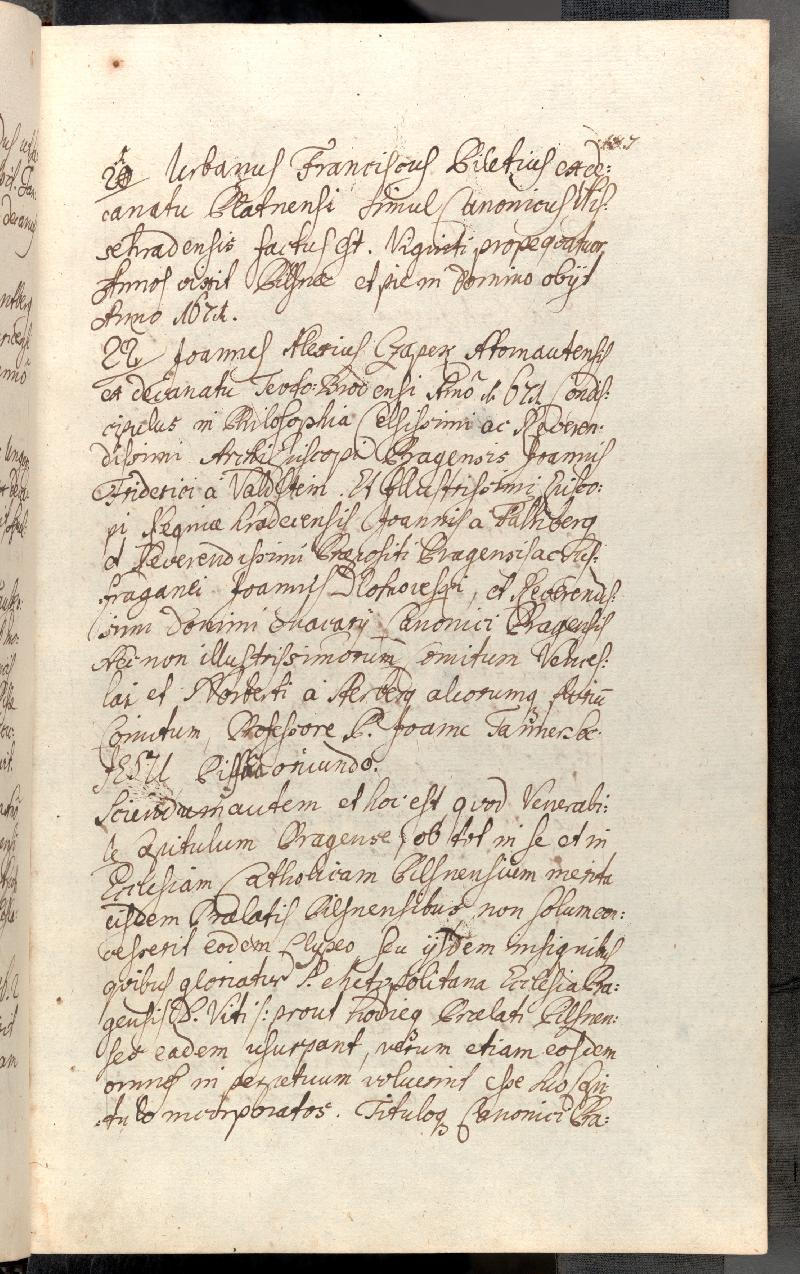 187
21 Urbanus Franciscus Piletius ex de:
canatu Blatnensi simul Canonicus Wis:
sehradensis factus est. Viginti prope quatuor
Annos vixit Pilsnæ et pie in Domino obijt
Anno 1671.
22 Joannes Alexius Czapek
ex decanatu Teuto:Brodensi Anno 1671 Condis:
cipulus in Philosophia Celsissimi ac Reveren:
dissimi Archi Episcopi Pragensis Joannis
Friderici à Valdstein. Et Illustrissimi Episco:
pi Reginæ hradecensis Joannis a Talmberg
et Reverendissimi Præpositi Pragensis ac Suf:
fraganei Joannis Dlohovesky, et Reverendis:
simi Domini Canonici Pragensis
Nec non illustrissimorum Comitum Vences:
lai et Norberti à Sterberg aliorumq
Comitum, Professore P. Joanne Tanner Soc:
JESU Pilsna oriundo.
Sciendum autem et hoc est quod Venerabi:
le Capitulum Pragense, ob tot in se et in
Ecclesiam Catholicam Pilsnensium merita
eisdem Prælatis Pilsnensibus non solum con:
cesserit eodem Clypeo seu ijsdem insignibus
quibus gloriatur S. Metropolitana Ecclesia Pra:
gensis D. Viti: prout hodieq Prælati Pilsnen:
ses eadem usurpant, verum etiam eosdem
omnes in perpetuum voluerint esse suo Capi
tulo incorporatos. Tituloq Canonici Pra: